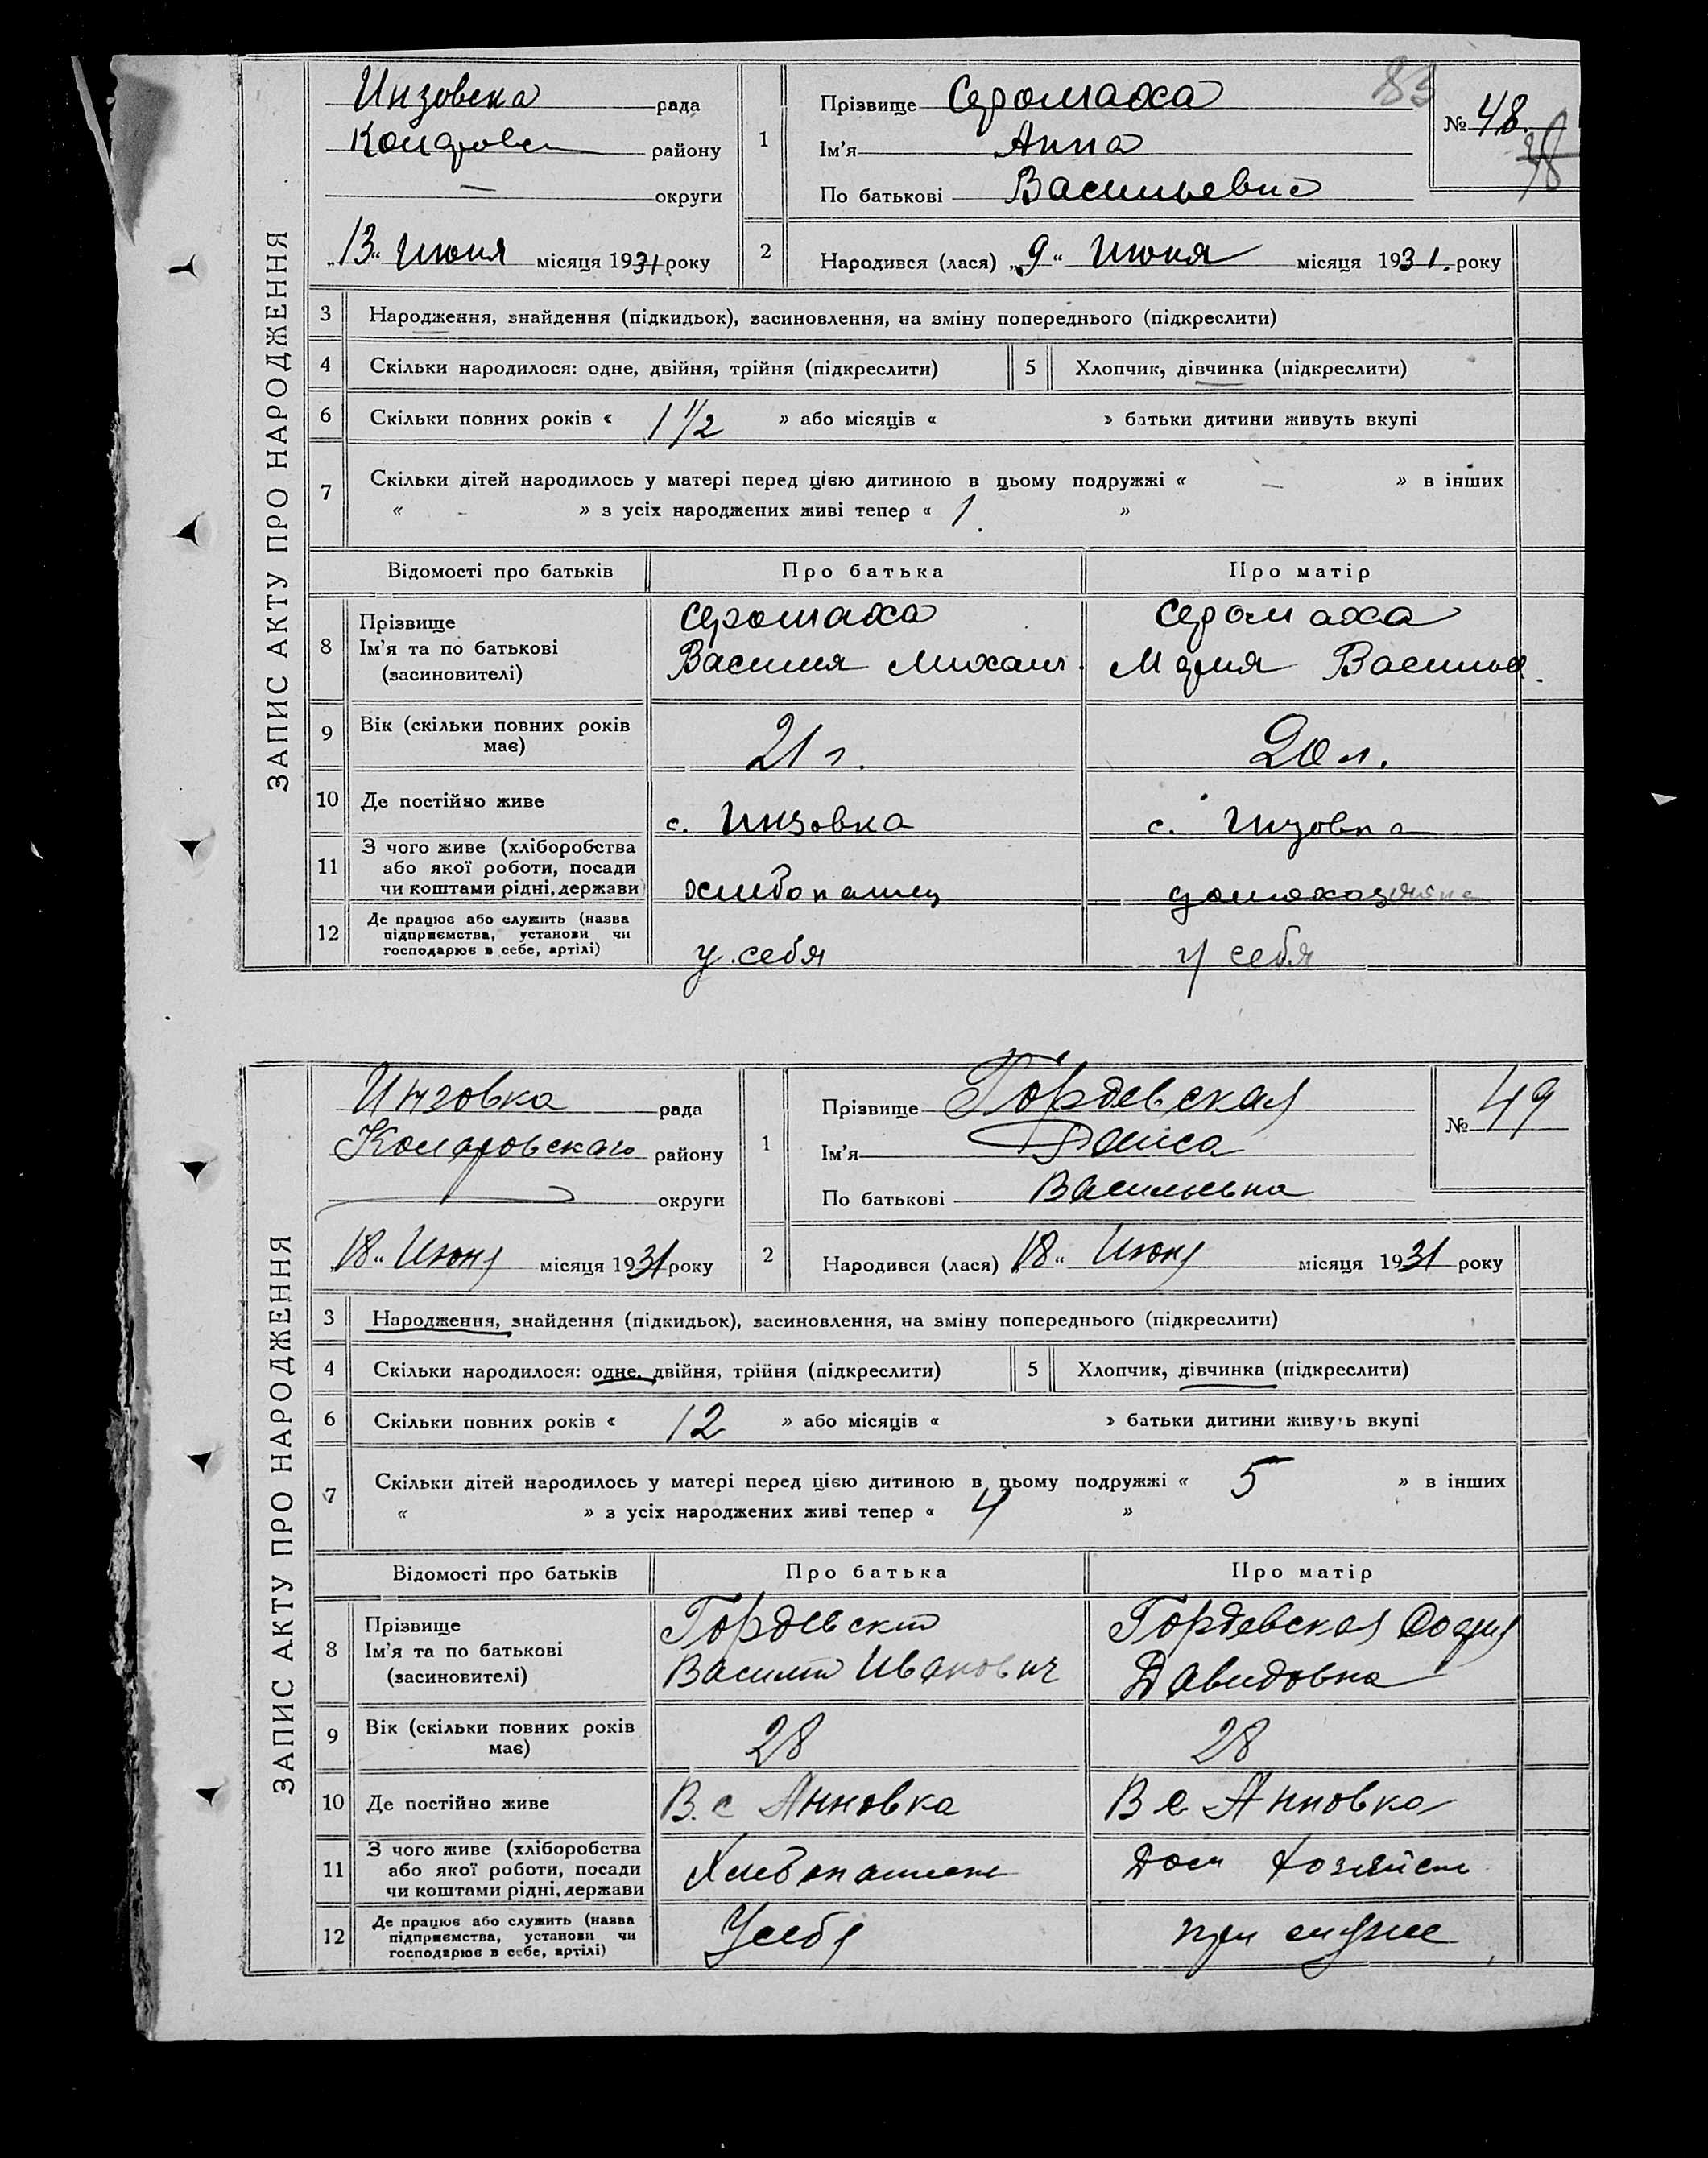 ЗАПИС АКТУ ПРО НАРОДЖЕННЯ
Инзовска рада
району
— округи
„13“ Июня місяця 1931 року
1
Прізвище Серомаха
Ім’я Анна
По батькові Васильевна
83
№ 48.
38
2
Народився (лася) „9“ Июня місяця 1931. року
3 Народження, знайдення (підкидьок), засиновлення, на зміну попереднього (підкреслити)
4 Скільки народилося: одне, двійня, трійня (підкреслити) 5 Хлопчик, дівчинка (підкреслити)
6 Скільки повних років « 1 1/2 » або місяців « » батьки дитини живуть вкупі
7 Скільки дітей народилось у матері перед цією дитиною в цьому подружжі « — » в інших
« - » з усіх народжених живі тепер « 1. »
Відомості про батьків Про батька Про матір
8 Прізвище
Ім’я та по батькові
(засиновителі)
Серомаха
Василия Михаил.
Серомаха
Мария Васильев.
9 Вік (скільки повних років
має)
21 г. 20 л.
10 Де постійно живе с. Инзовка с. Инзовка
11 З чого живе (хліборобства
або якої роботи, посади
чи коштами рідні, держави)
хлебопашец домохозяйка
12 Де працює або служить (назва
підприємства, установи чи
господарює в себе, артілі)
у себя у себя
ЗАПИС АКТУ ПРО НАРОДЖЕННЯ
Инзовка рада
району
округи
„18“ Июня місяця 1931 року
1
Прізвище Гордевская
Ім’я Раиса
По батькові Васильевна
№ 49
2
Народився (лася) „18“ Июня місяця 1931 року
3 Народження, знайдення (підкидьок), засиновлення, на зміну попереднього (підкреслити)
4 Скільки народилося: одне, двійня, трійня (підкреслити) 5 Хлопчик, дівчинка (підкреслити)
6 Скільки повних років « 12 » або місяців « » батьки дитини живуть вкупі
7 Скільки дітей народилось у матері перед цією дитиною в цьому подружжі « 5 » в інших
« » з усіх народжених живі тепер « 4 »
Відомості про батьків Про батька Про матір
8 Прізвище
Ім’я та по батькові
(засиновителі)
Гордевский
Василий Иванович
Гордевская София
Давидовна
9 Вік (скільки повних років
має)
28 28
10 Де постійно живе В. с Анновка В с Анновка
11 З чого живе (хліборобства
або якої роботи, посади
чи коштами рідні, держави
Хлебопашен Дом хозяйст
12 Де працює або служить (назва
підприємства, установи чи
господарює в себе, артілі)
Усебя при